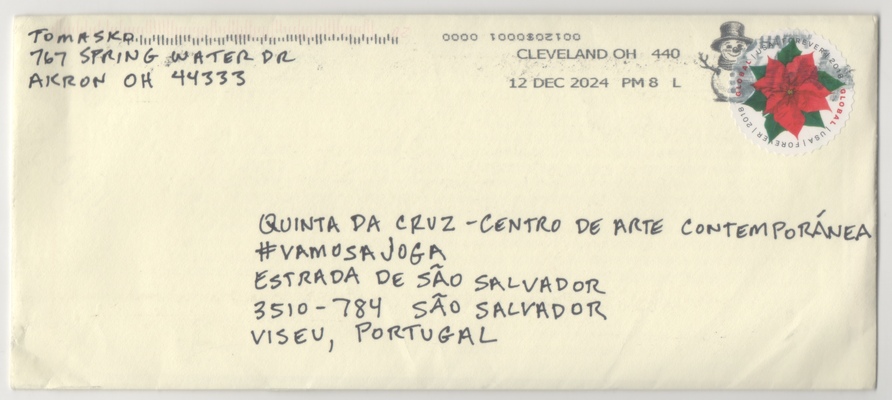 TOMASKO
767 SPRING WATER DR
AKRON OH 44333
0012080001 0000
CLEVELAND OH 440
12 DEC 2024 PM 8 L
GLOBAL | USA | FOREVER | 2018
QUINTA DA CRUZ - CENTRO DE ARTE CONTEMPORÁNEA
#VAMOSAJOGA
ESTRADA DE SÃO SALVADOR
3510-784 SÃO SALVADOR
VISEU, PORTUGAL